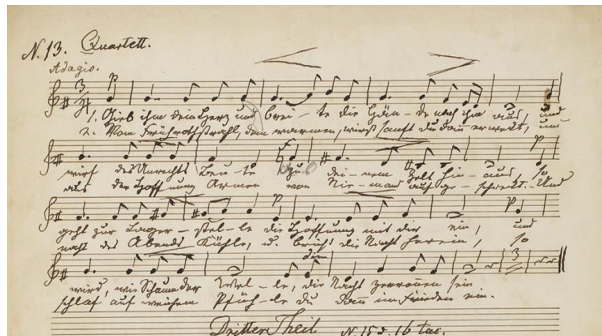 N. 13. Quartett.
Adagio.
1. Gieb ihm dein Herz und brei - te die Hän - de nach ihm aus, und
2. Vom Frührothstrahl, dem warmen, wirst sanft du dann erweckt, und
wirf des Unrechts Beu - te aus dei - nem Zelt hin - aus, So
aus der Hoff nung Armen von Nie - mand aufge - schreckt. Und
geht zur Lager - stel - le die Hoffnung mit dir ein, und
naht des Abends Kühle, u. bricht die Nacht herein, so
wird, wie Schaum der Wel - le, die Nacht zerronnen sein
schlaf auf weichem Pfüh - le du dann in Frieden ein.
Dritter Theil N. 15 d. 16 tac.